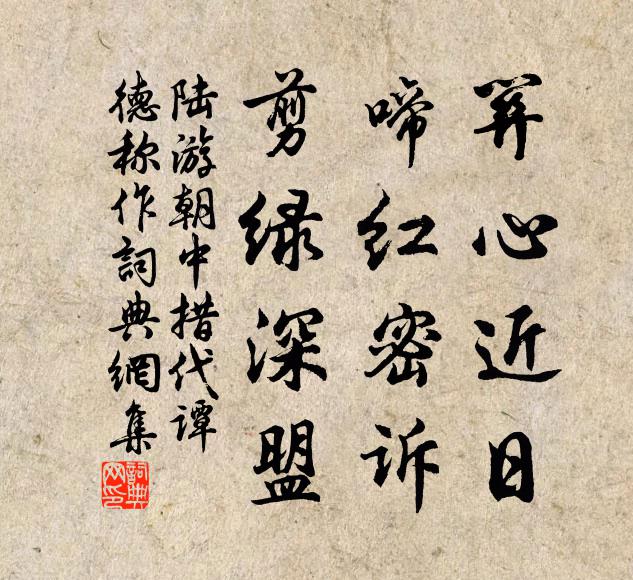 关心近日
啼红密诉
剪绿深盟
陆游朝中措代谭
德称作詞典網集
詞典网印